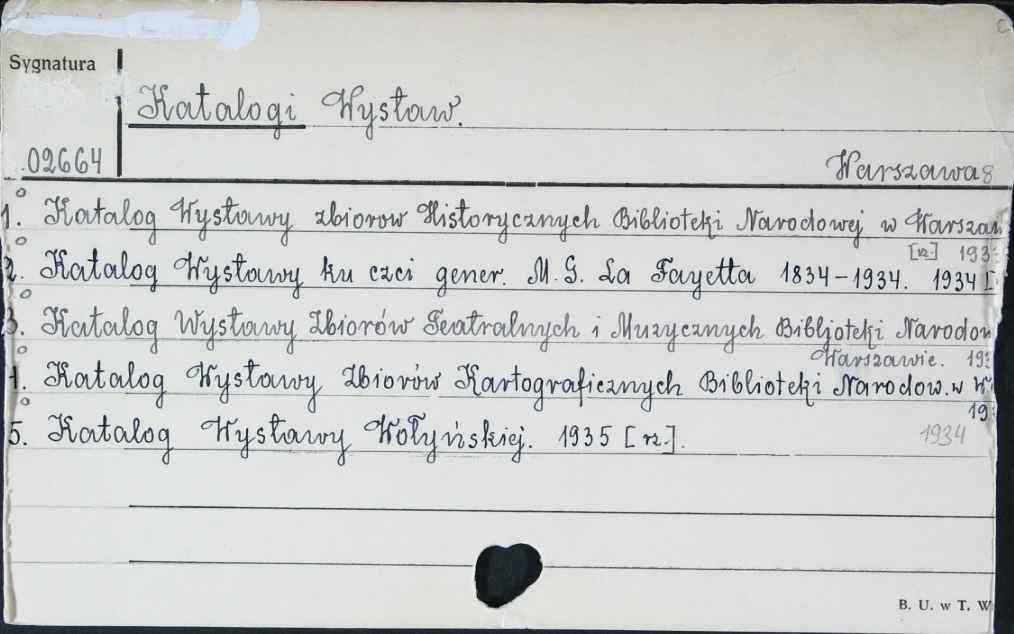 Sygnatura
Katalogi Wystaw.
02664
Warszawa 8
1. Katalog Wystawy zbiorow Historycznych Biblioteki Narodowej w Warszaw
[rz.] 193
2. Katalog Wystawy ku czci gener. M. G. La Fayetta 1834-1934. 1934 [
3. Katalog Wystawy Zbiorów Teatralnych i Muzycznych Bibljoteki Narodow
Warszawie. 193
4. Katalog Wystawy Zbiorów Kartograficznych Biblioteki Narodow. w W
19
5. Katalog Wystawy Wołyńskiej. 1935 [rz.].
1934
B. U. w T. W